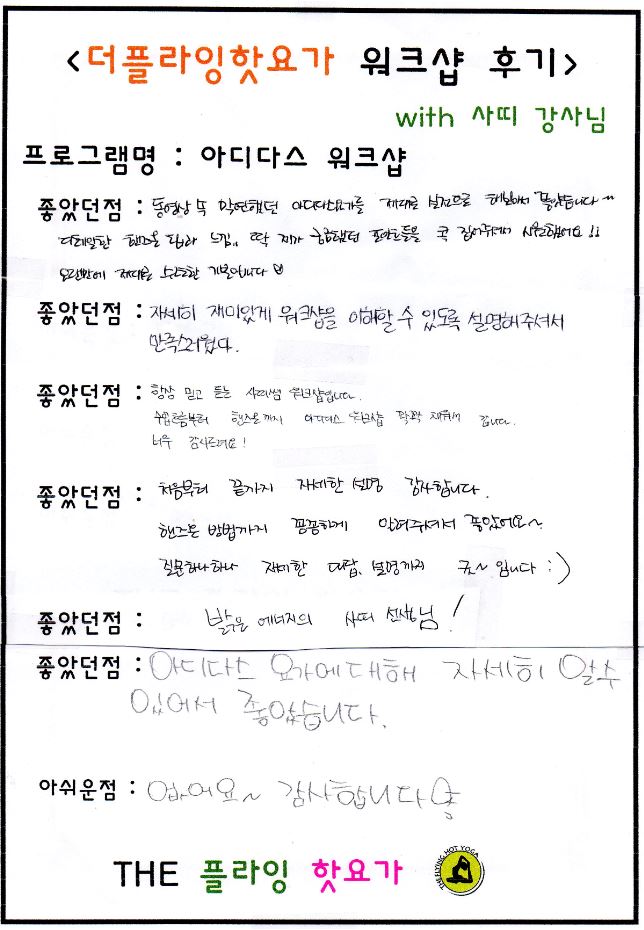 <더플라잉핫요가 워크샵 후기>
with 사띠 강사님
프로그램명 : 아디다스 워크샵
좋았던점 : 동영상 뚝 막연했던 아디다스요가를 제대로 실전으로 해봐서 좋았습니다~
디테일한 핸즈온 딥하 느낌.. 딱 제가 궁금했던 포인트들을 콕 집어주셔서 시원했어요!!
오랜만에 제대로 수련한 기분입니다
좋았던점 : 자세히 재미있게 워크샵을 이해할 수 있도록 설명해주셔서
만족스러웠다.
좋았던점 : 항상 믿고 듣는 사띠쌤 워크샵입니다.
수업흐름부터 핸즈온까지 아디다스 워크샵 꽉꽉 채워서 갑니다.
너무 감사드려요!
좋았던점 : 처음부터 끝까지 자세한 설명 감사합니다.
핸즈온 방법까지 꼼꼼하게 알려주셔서 좋았어요~
질문하나하나 자세한 대답, 설명까지 굿~ 입니다 :)
좋았던점 : 밝은 에너지의 사띠 선생님!
좋았던점 : 아디다스 요가에대해 자세히 알수
있어서 좋았습니다.
아쉬운점 : 없어요~ 감사합니다
THE 플라잉 핫요가
THE FLYING HOT YOGA